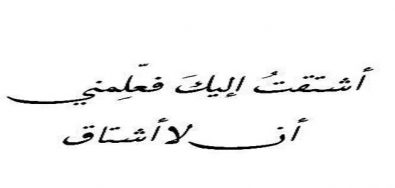 أشتقتُ إليكَ فعلّمِني
أن لا أشتاق